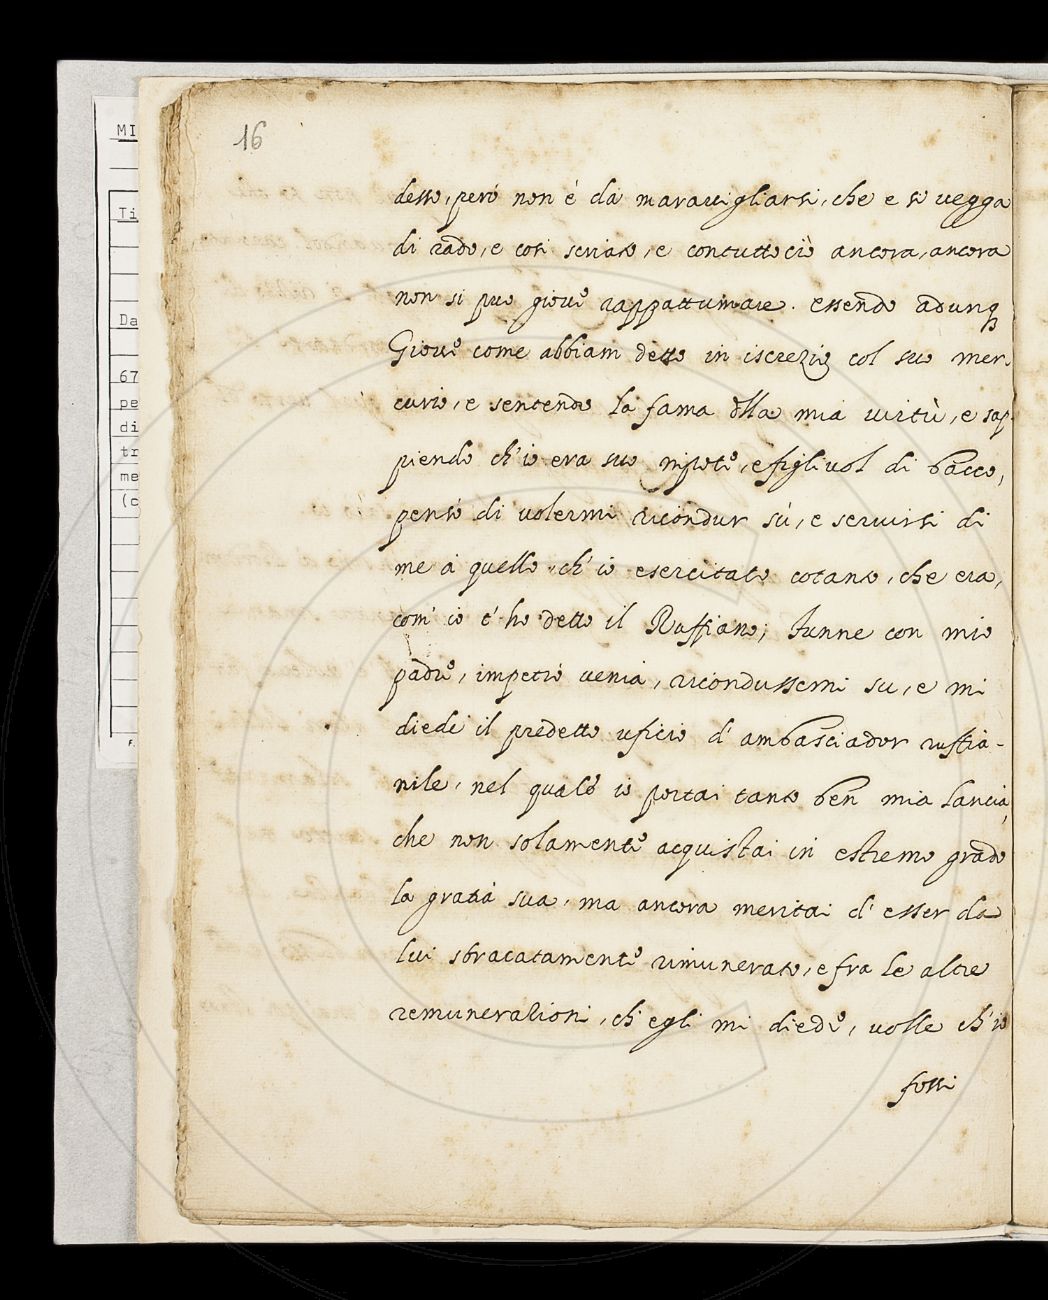 16
MI
Ti
Da
67
pe
di
tr
me
(c
F.
detto, però non é da marauigliarsi, che e si uegga
di rado, e cosi scriato, e contutto ciò ancora, ancora
non si può gioue rappattumare. essendo adunq
Gioue come abbiam detto in iscrezio col suo mer-
curio, e sentendo la fama dlla mia uirtù, e sap
piendo ch'io era suo nipote, e figliuol di bacco,
pensò di uolermi ricondur sù, e seruirsi di
me à quello ch'io esercitato cotanto, che era,
com' io é ho detto il Ruffiano; funne con mio
padre, impetrò uenia, ricondussemi su, e mi
diede il predetto uficio d'ambasciador ruffia-
nile, nel quale io portai tanto ben mia lancia,
che non solamente acquistai in estremo grado
la gratia sua, ma ancora meritai d'esser da
lui sbracatamente rimunerato, e fra le altre
remunerazioni, ch'egli mi diede, uolle ch'io
fossi